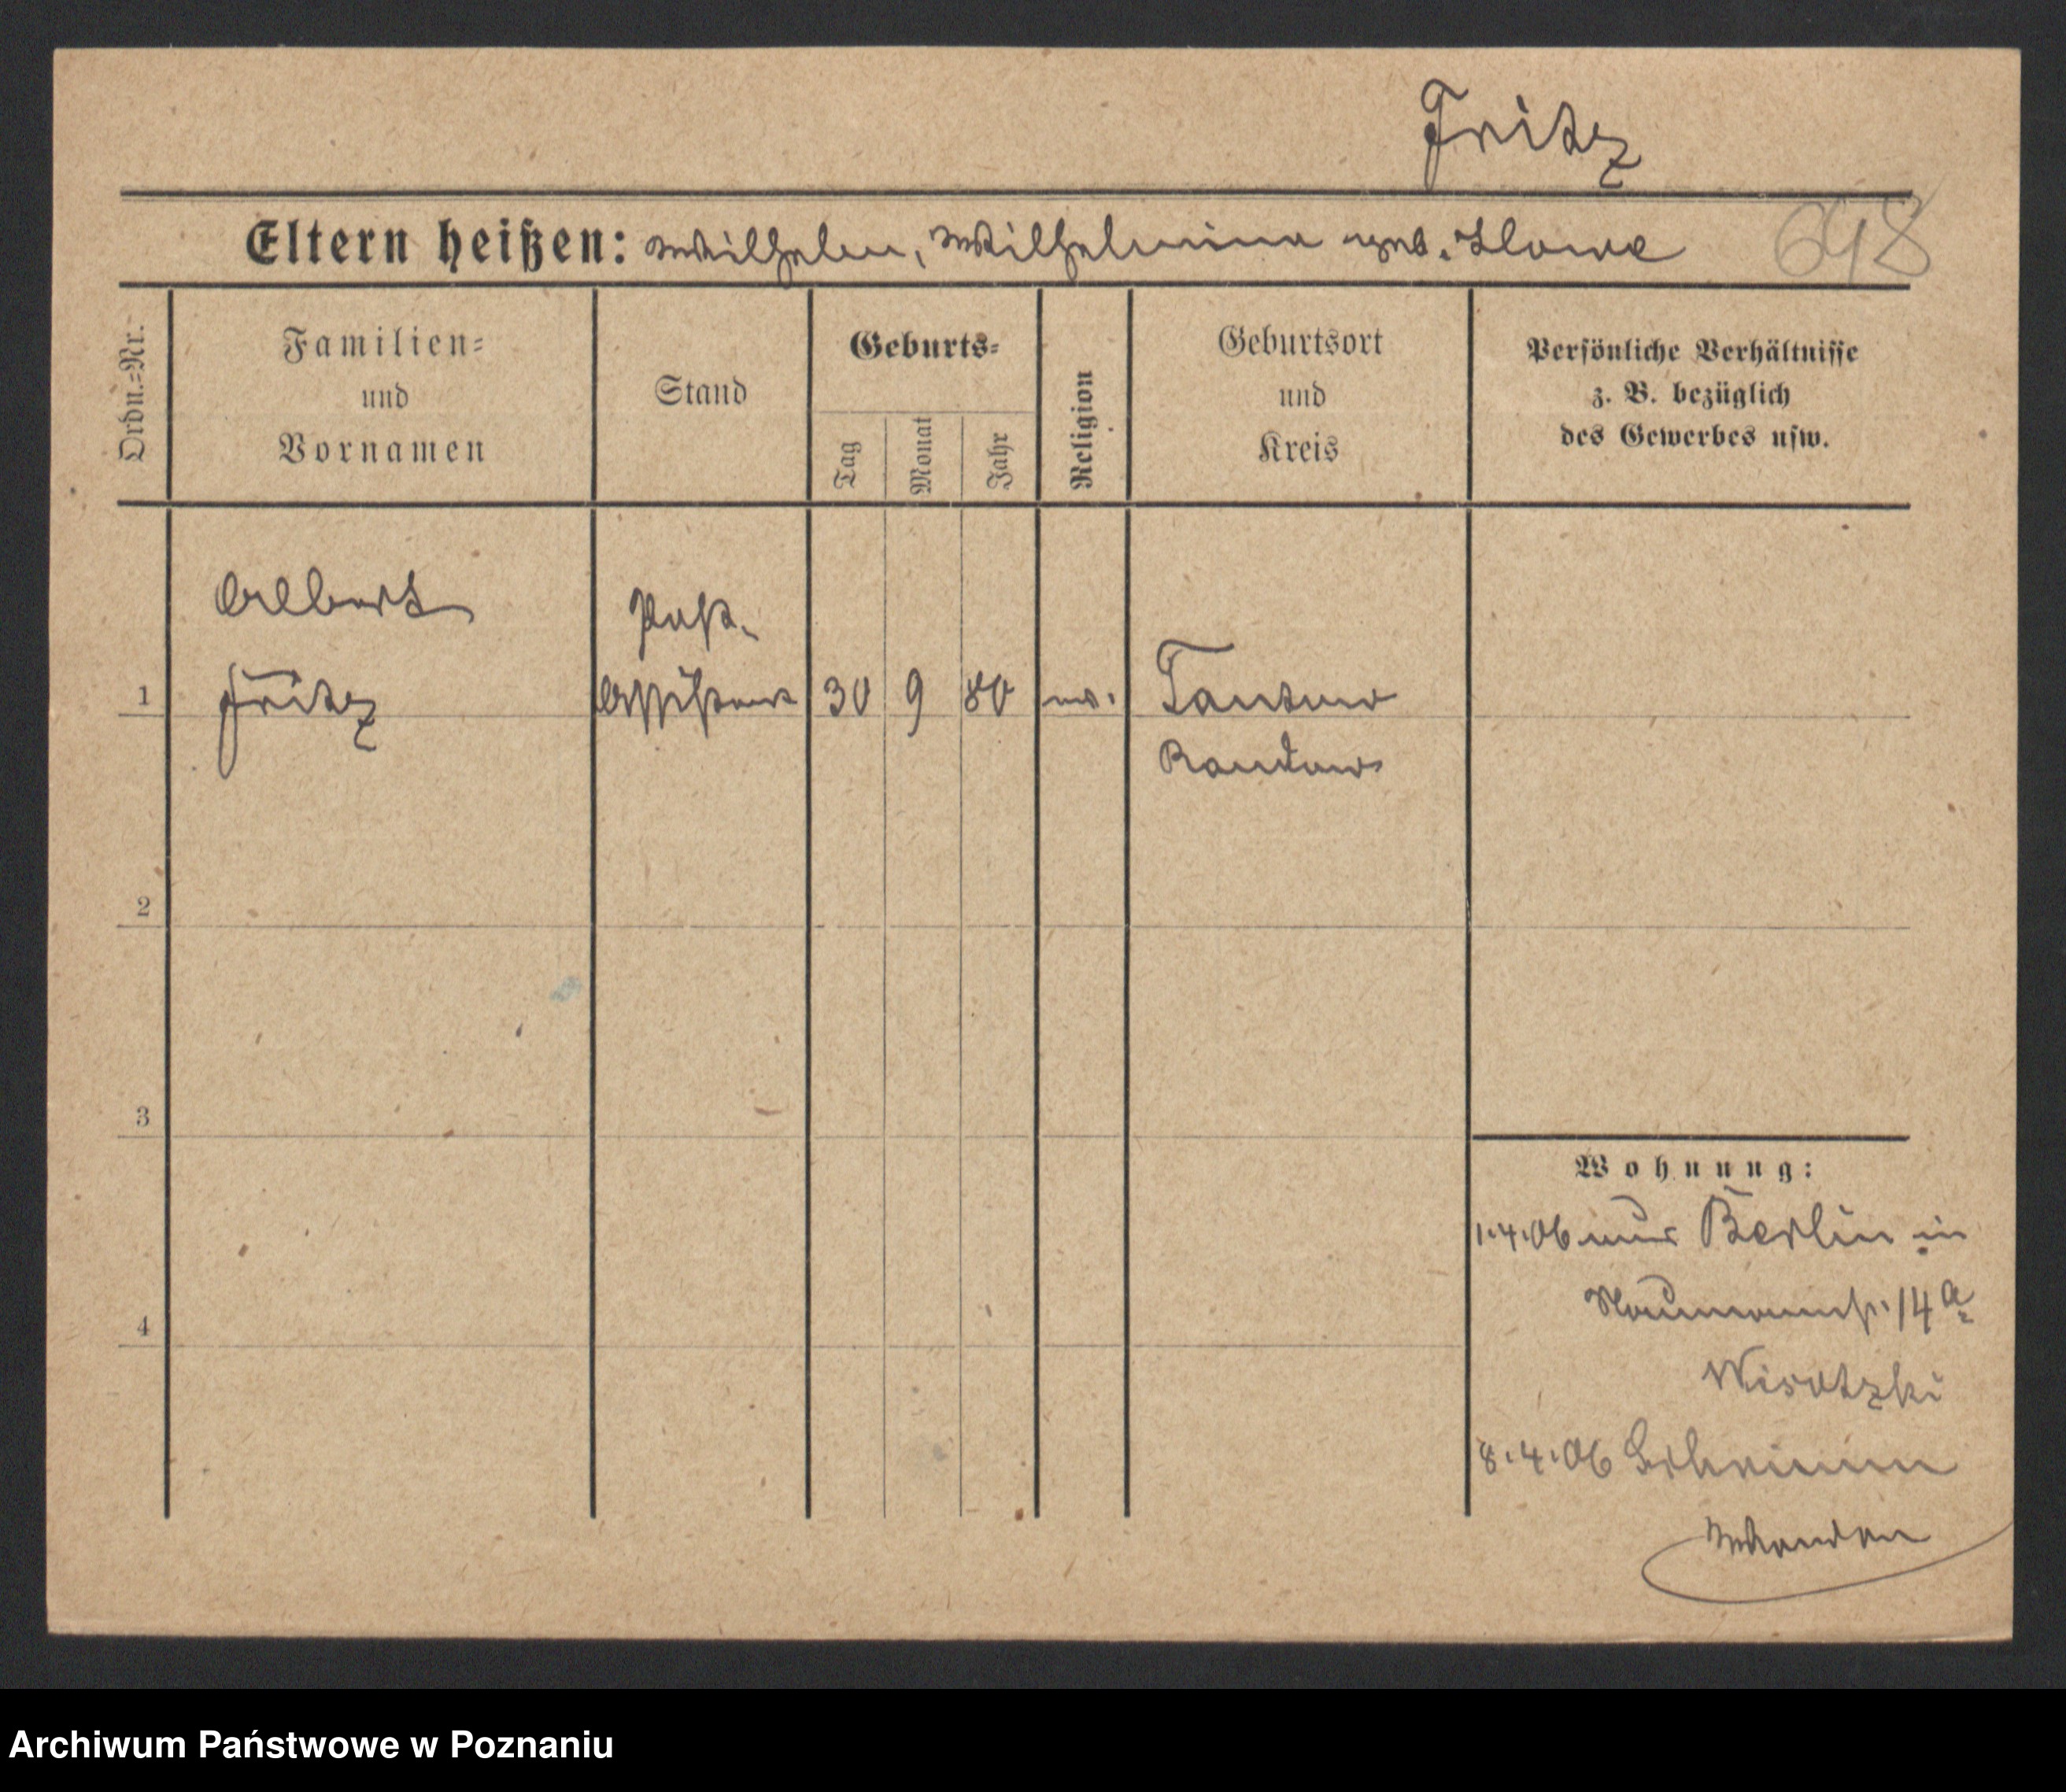 Fritz
Eltern heißen: Wilhelm, Wilhelmine geb.
Ordn.=Nr.
Familien=
und
Vornamen
Stand
Geburts=
Tag
Monat
Jahr
Religion
Geburtsort
und
Kreis
Persönliche Verhältnisse
z. B. bezüglich
des Gewerbes usw.
Albert
Post-
1 Fritz Assistent 30 9 80 ev. Tantow
Randow
2
3
4
Wohnung:
1.4.06 aus Berlin in
Naumannstr. 14a
Wisotzki
8.4.06
Archiwum Państwowe w Poznaniu